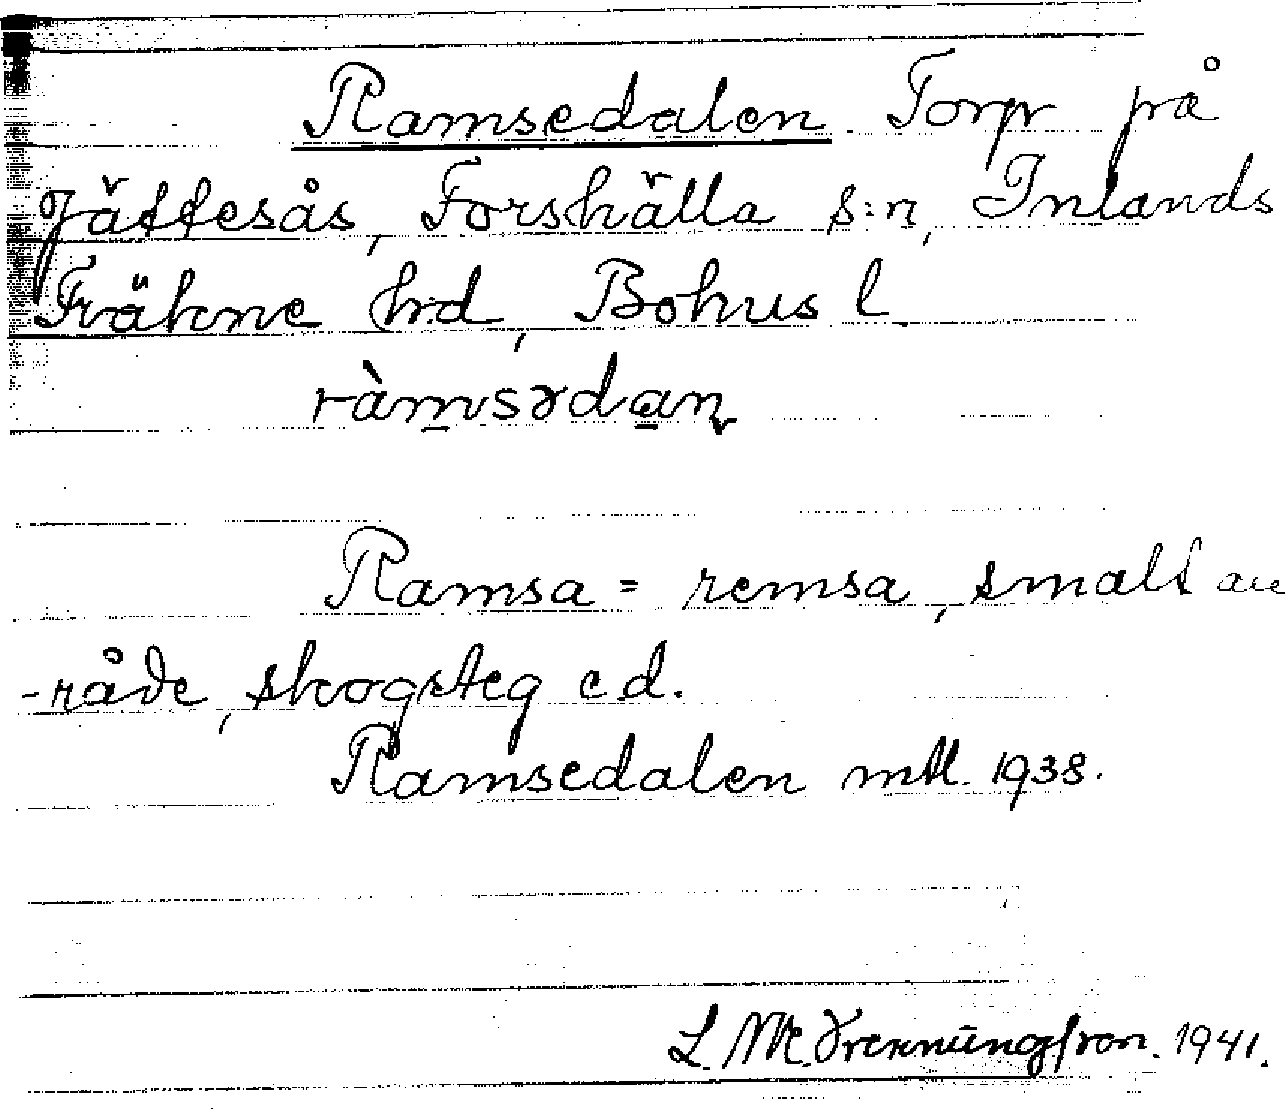 Ramsedalen Torp på
Jättesås, Forshälla s:n, Inlands
Fräkne hd, Bohus l
ràmsədan
Ramsa = remsa, smalt
-råde, skogsteg e d.
Ramsedalen mtl. 1938.
L. M. 1941.